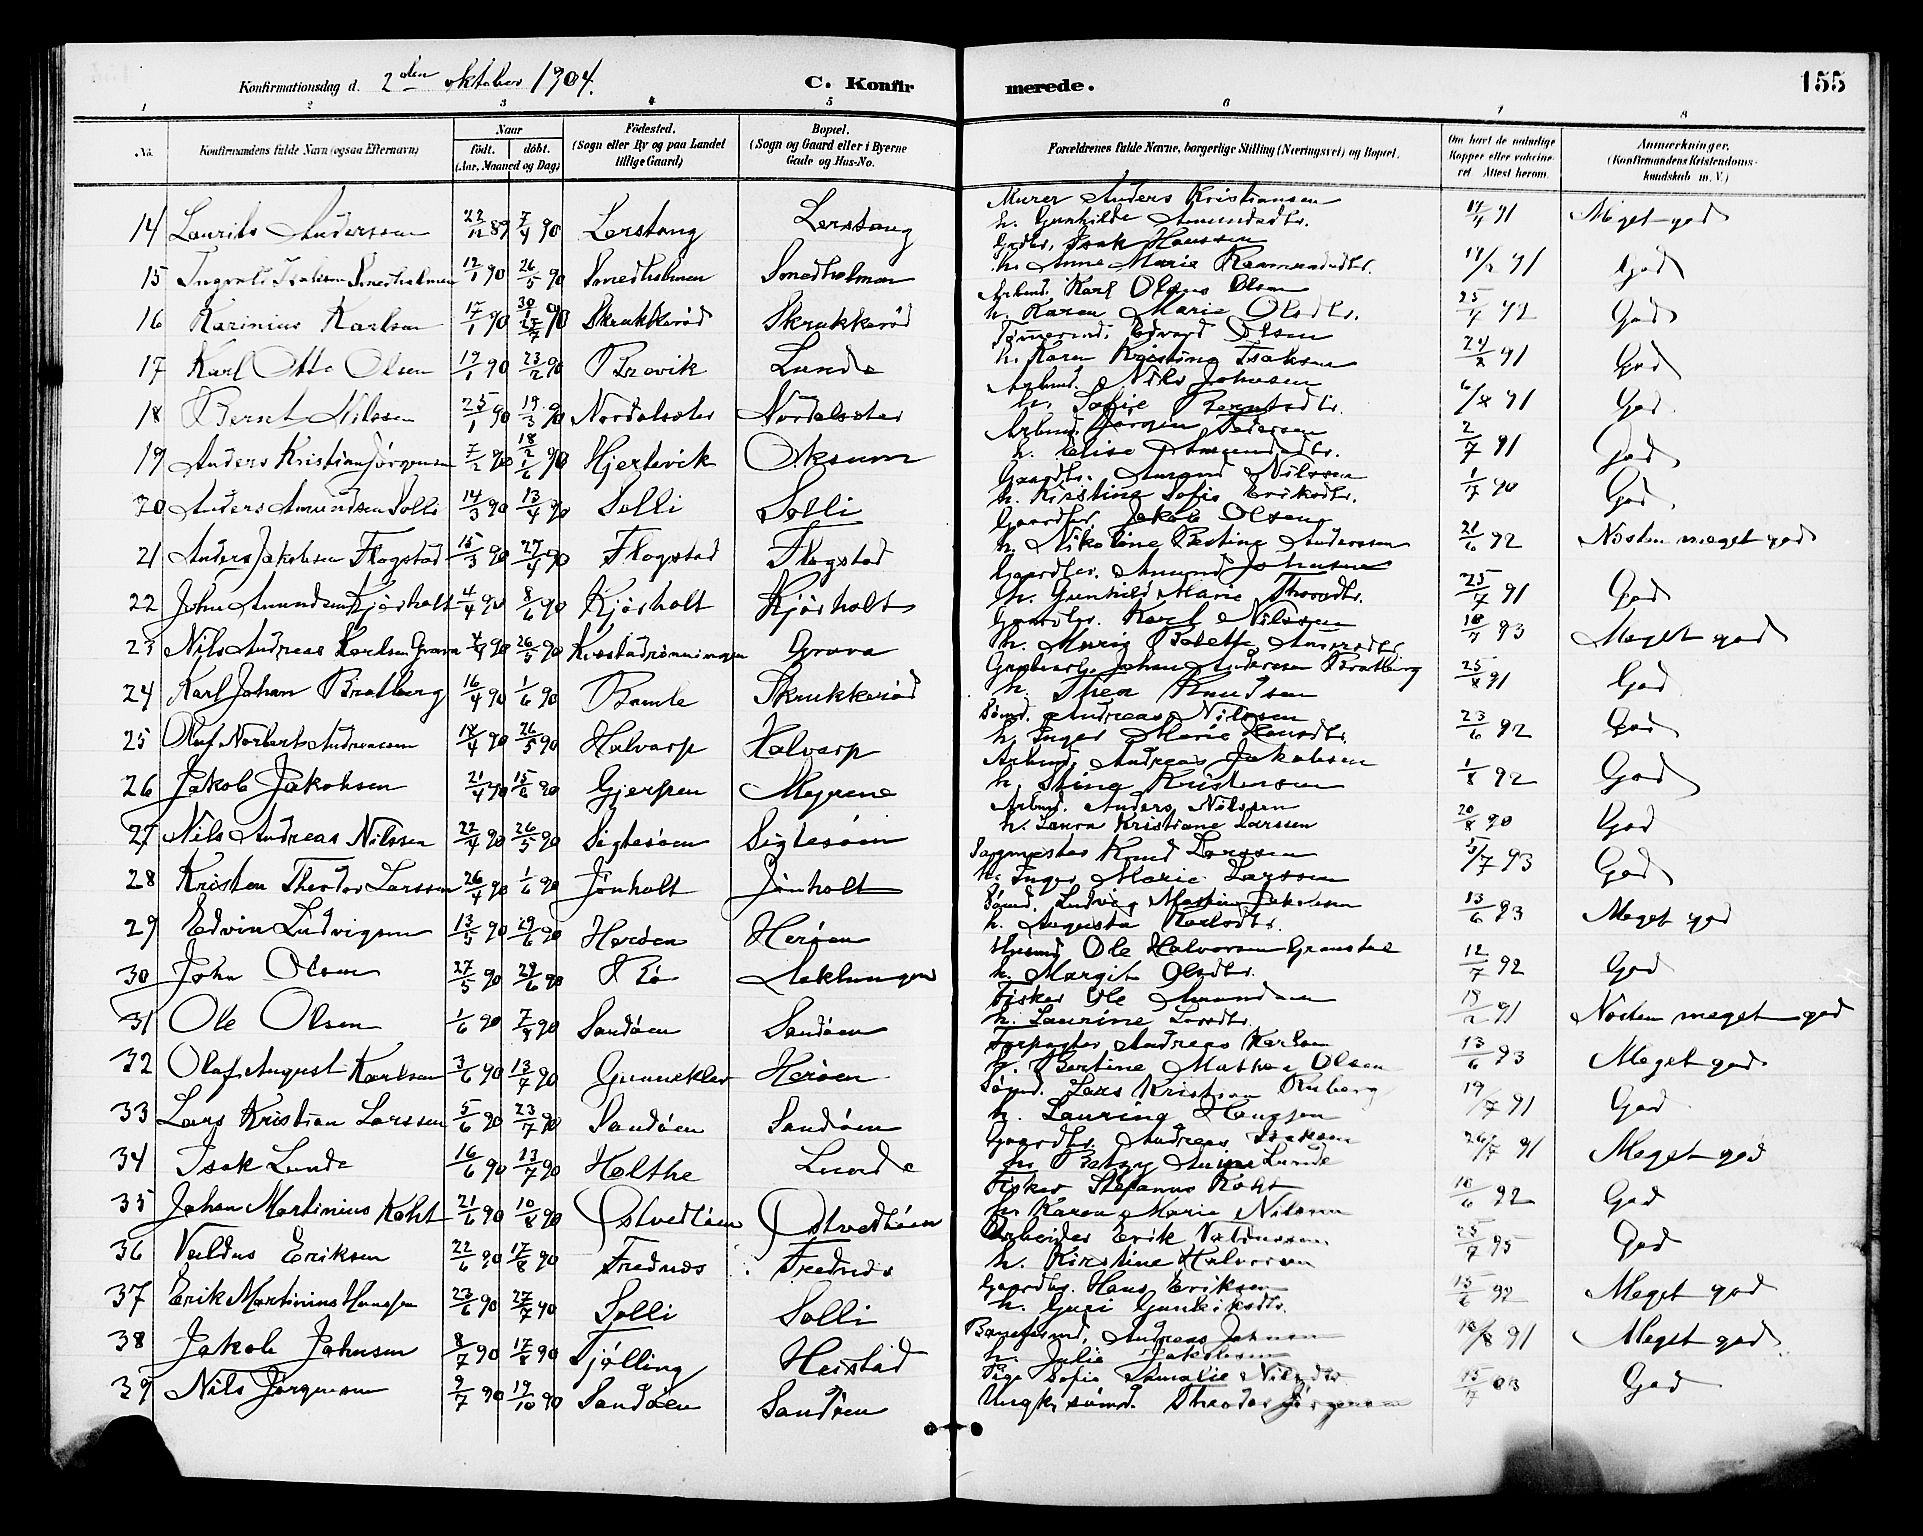 Konfirmationsdag d. 2den oktober 1904. C. Konfirmerede. 155
1 2 3 4 5 6 7 8
No. Konfirmandens fulde Navn (ogsaa Efternavn) Naar født. døbt. (Aar, Maaned og Dag) Fødested. (Sogn eller By og paa Landet tillige Gaard) Bopæl. (Sogn og Gaard eller i Byerne Gade og Hus-No. Forældrenes fulde Navne, borgerlige Stilling (Næringsvei) og Bopæl. Om havt de naturlige Kopper eller vaccineret Attest herom. Anmærkninger. (Konfirmandens Kristendomskundskab m. V.)
14 Laurits Anderssen 22/12 89 7/4 90 Lerstang Lerstang Murer Anders Kristiansen
h. Gunhilde Amundsdtr. 17/4 91 Meget god
15 Ingvald Isaksen Smedholmen 12/1 90 26/5 90 Smedholmen Smedholmen Grdbr. Isak Hanssen
h. Anne Marie 14/2 91 God
16 Karinius Karlsen 17/1 90 Skrukkerød Skrukkerød Arbmd. Karl Olaus Olsen
h. Karen Marie Olsdtr. 25/4 92 God
17 Karl Otto Olsen 19/1 90 23/2 90 Brevik Lunde Tømmermd. Edvard Olsen
h. Karen Kristine Isaksen 91 God
18 Bernt Nilssen 25/1 90 19/3 90 Nordalsøter Nordalsøter Arbmd. Nils Johnsen
h. Sofie Berntsdtr. 91 God
19 Anders Kristian Jørgensen 7/2 90 90 Hjertevik Oksum Arbmd. Jørgen Pedersen
h. Elise Amundsdtr. 2/7 91 God
20 Anders Amundsen Solli 14/3 90 13/4 90 Solli Solli Gaardbr. Amund Nilssen
h. Kirstine Sofie Eriksdtr. 1/7 90 God
21 Anders Jakobsen Flogstad 15/3 90 27/4 90 Flogstad Flogstad Gaardbr. Jakob Olsen
h. Nikoline Bertine Anderssen 21/6 92 Næsten meget god
22 John Amundsen Kjørholt 4/4 90 8/6 90 Kjørholt Kjørholt Gaardbr. Amund Johnsen
h. Gunhild Marie Thorsdtr. 25/7 91 God
23 Nils Andreas Karlsen Grava 90 26/5 90 Grava Gaardbr. Karl Nilssen
h. Marie 18/7 93 Meget god
24 Karl Johan Bratberg 16/4 90 1/6 90 Bamle Skrukkerød Johan Anderssen Bratberg
h. Thea Knudsen 91 God
25 Olaf Norbert Andreassen 18/4 90 26/5 90 Halvarp Halvarp Sømd. Andreas Nilssen
h. Inger Marie Hansdtr. 23/6 92 God
26 Jakob Jakobsen 21/4 90 15/6 90 Gjerpen Myrene Arbmd. Andreas Jakobsen
h. Stina Kristensen 1/8 92 God
27 Nils Andreas Nilssen 22/4 90 26/5 90 Sigtesøen Sigtesøen Arbmd. Anders Nilssen
h. Laura Kristiane Larssen 20/8 90 God
28 Kristen Theodor Larssen 26/4 90 1/6 90 Jønholt Jønholt Knud Larssen
h. Inger Marie Larssen 5/7 93 God
29 Edvin Ludvigsen 13/5 90 29/6 90 Herøen Herøen Sømd. Ludvig Martin Jakobsen
h. Augusta Karlsdtr. 13/6 93 Meget god
30 John Olsen 27/5 90 29/6 90 Bø Eklungen Husmd. Ole Halvorsen
h. Margit Olsdtr. 12/7 92 God
31 Ole Olsen 1/6 90 90 Sandøen Sandøen Fisker Ole Amundsen
h. Laurine Larsdtr. 19/2 91 Næsten meget god
32 Olaf August Karlsen 3/6 90 13/7 90 Gunneklev Herøen Andreas Karlsen
h. Bertine Mathea Olsen 13/6 93 Meget god
33 Lars Kristian Larssen 5/6 90 23/7 90 Sandøen Sandøen Sømd. Lars Kristian
h. Laurine Hanssen 19/7 91 God
34 Isak Lunde 16/6 90 13/7 90 Holthe Lunde Gaardbr. Andreas Isaksen
h. Betzy Lunde 26/7 91 Meget god
35 Johan Martinius Koht 21/6 90 10/8 90 Østvedtøen Østvedtøen Fisker Stefanus Koht
h. Karen Marie Nilssen 10/6 92 God
36 Valdus Eriksen 22/6 90 17/8 90 Frednes Frednes Arbeider Erik Valdussen
h. Kirstine Halvorsen 25/7 95 God
37 Erik Martinius Hanssen 23/6 90 27/7 90 Solli Solli Gaardbr. Hans Eriksen
h. Guri 15/6 92 Meget god
38 Jakob Johnsen 8/7 90 17/8 90 Tjølling Heistad Andreas Johnsen
h. Julie Jakobsen 91 Meget god
39 Nils Jørgensen 9/7 90 19/10 90 Sandøen Sandøen Pige Sofie Amalie Nilsdtr.
Ungk. sømd. Theodor Jørgensen 15/7 03 God